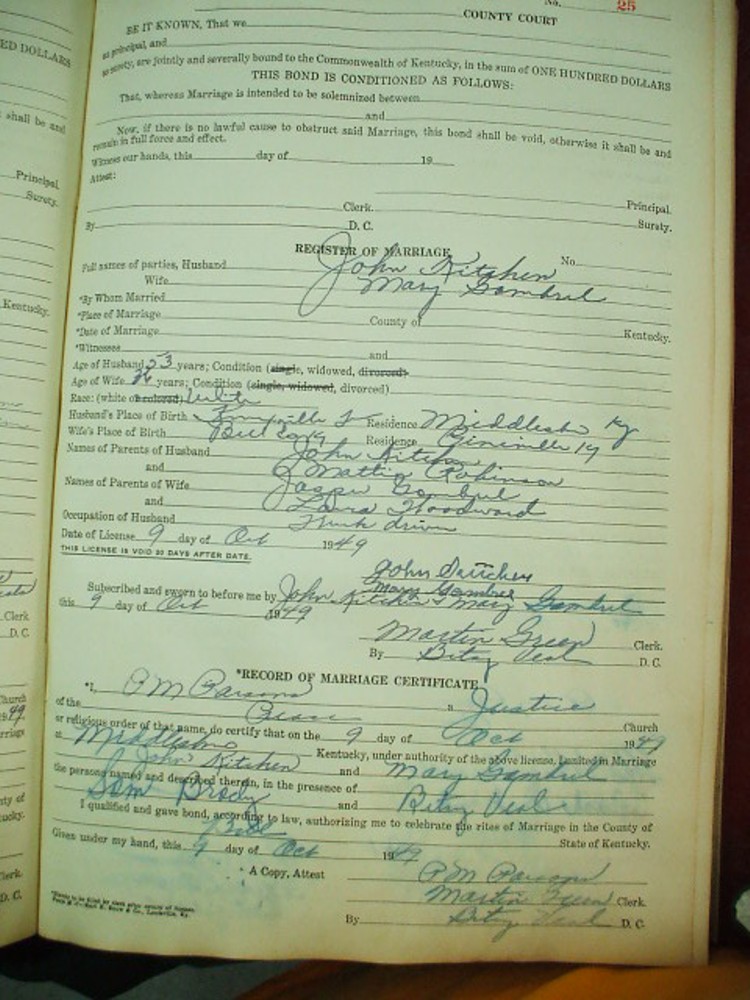 No. 25
COUNTY COURT
ED DOLLARS
BE IT KNOWN, That we
as principal, and
as surety, are jointly and severally bound to the Commonwealth of Kentucky, in the sum of ONE HUNDRED DOLLARS
THIS BOND IS CONDITIONED AS FOLLOWS:
That, whereas Marriage is intended to be solemnized between
and
shall be and
Now, if there is no lawful cause to obstruct said Marriage, this bond shall be void, otherwise it shall be and
remain in full force and effect.
Witness our hands, this day of 19
Attest:
Principal.
Surety.
Clerk. Principal.
By D. C. Surety.
REGISTER OF MARRIAGE No.
Full names of parties, Husband John Kitchen
Wife Mary Gambrel
*By Whom Married
*Place of Marriage County of Kentucky.
Kentucky.
*Date of Marriage
*Witnesses and
Age of Husband 53 years; Condition (single, widowed, divorced)
Age of Wife years; Condition (single, widowed, divorced)
Race: (white or colored) White
Husband's Place of Birth Residence Middlesboro Ky
Wife's Place of Birth Bell Co Ky Residence
Names of Parents of Husband John Kitchen
and Mattie Robinson
Names of Parents of Wife Jasper Gambrel
and Laura Woodward
Occupation of Husband Truck driver
Date of License 9 day of Oct 1949
THIS LICENSE IS VOID 30 DAYS AFTER DATE.
John
Mary Gambrel
Subscribed and sworn to before me by John Kitchen & Mary Gambrel
this 9 day of Oct 1949
Martin Green Clerk.
By Betsy Veal D. C.
Clerk
D. C.
*RECORD OF MARRIAGE CERTIFICATE
*I, P M Parsons a Justice
of the Peace Church
or religious order of that name, do certify that on the 9 day of Oct 1949
at Middlesboro Kentucky, under authority of the above license, I united in Marriage
John Kitchen and Mary Gambrel
the persons named and described therein, in the presence of
Sam Brody and Betsy Veal
I qualified and gave bond, according to law, authorizing me to celebrate the rites of Marriage in the County of
Bell State of Kentucky.
Given under my hand, this 9 day of Oct 1949
P M Parsons
A Copy, Attest Martin Green Clerk.
By Betsy Veal D. C.